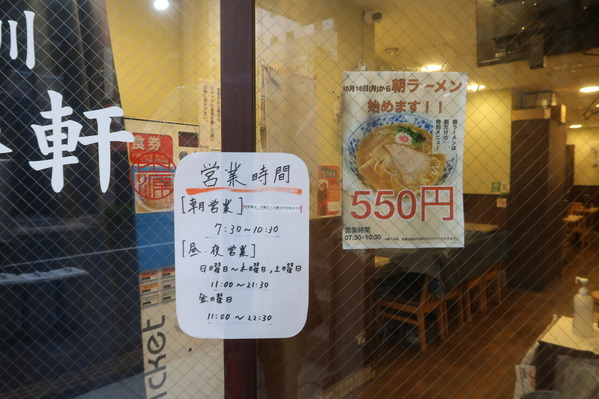 川
軒
食券
営業時間
[朝営業]
7:30～10:30
[昼.夜営業]
日曜日～木曜日,土曜日
11:00～21:30
金曜日
11:00～22:30
icket
10月16日(月)から朝ラーメン
始めます！！
朝ラーメンは
朝だけの
特別メニュー
550円
営業時間
07:30-10:30